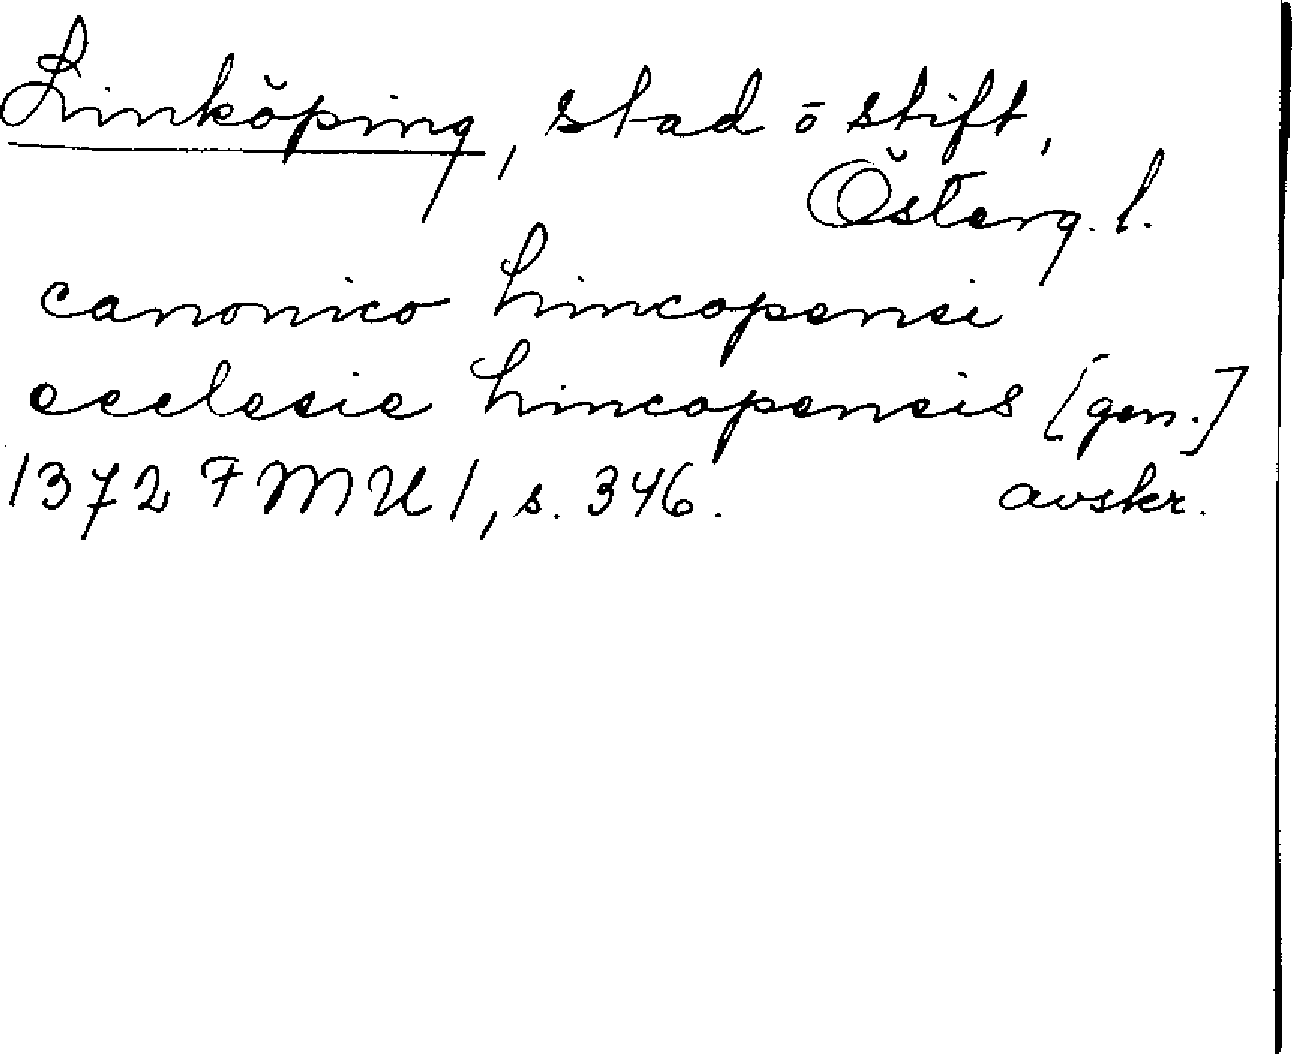 Linköping, stad ō stift,
Österg. l.
canonico Lincopensi
ecclesie Lincopensis [gen.]
1372 FMU 1, s. 346. avskr.